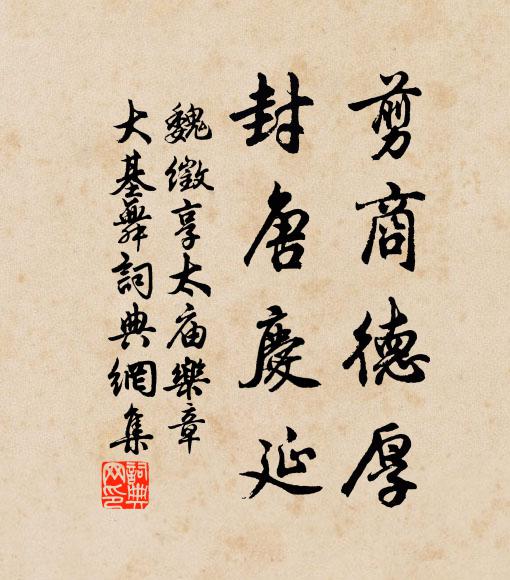 剪商德厚
封唐慶延
魏徵享太庙樂章
大基舞詞典網集
詞典网印